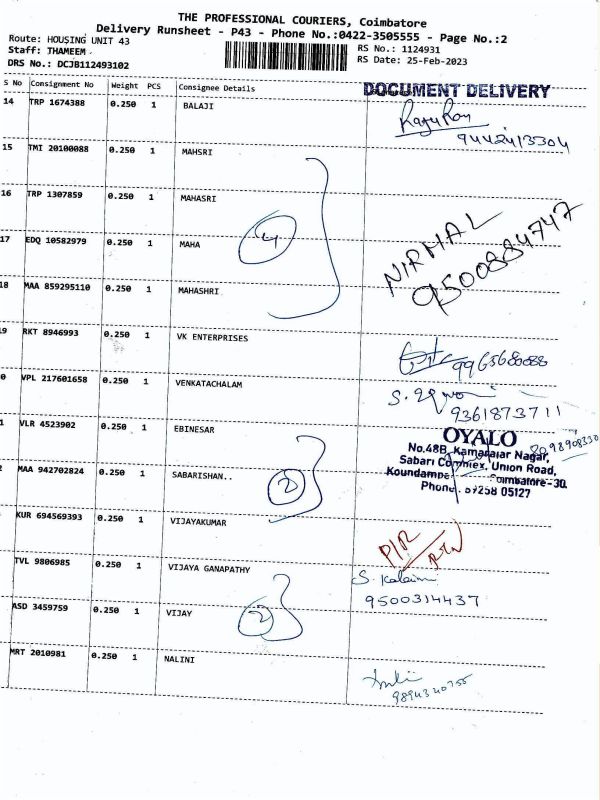 THE PROFESSIONAL COURIERS, Coimbatore
Delivery Runsheet - P43 - Phone No.:0422-3505555 - Page No.:2
Route: HOUSING UNIT 43
Staff: THAMEEM
DRS No.: DCJB112493102
RS No.: 1124931
RS Date: 25-Feb-2023
S No Consignment No Weight PCS Consignee Details
DOCUMENT DELIVERY
14 TRP 1674388 0.250 1 BALAJI
9442413304
15 TMI 20100088 0.250 1 MAHSRI
16 TRP 1307859 0.250 1 MAHASRI
17 EDQ 10582979 0.250 1 MAHA
4
NIRMAL
9500884747
18 MAA 859295110 0.250 1 MAHASHRI
9 RKT 8946993 0.250 1 VK ENTERPRISES
9965680088
0 VPL 217601658 0.250 1 VENKATACHALAM
9361873711
1 VLR 4523902 0.250 1 EBINESAR
OYALO
No.48B, Kamarajar Nagar,
Sabari Complex, Union Road,
Coimbatore-30.
Phone: 89258 05127
2 MAA 942702824 0.250 1 SABARISHAN..
2
KUR 694569393 0.250 1 VIJAYAKUMAR
P/R
RTN
TVL 9806985 0.250 1 VIJAYA GANAPATHY
S. Kalaim
9500314437
ASD 3459759 0.250 1 VIJAY
2
MRT 2010981 0.250 1 NALINI
9894340755